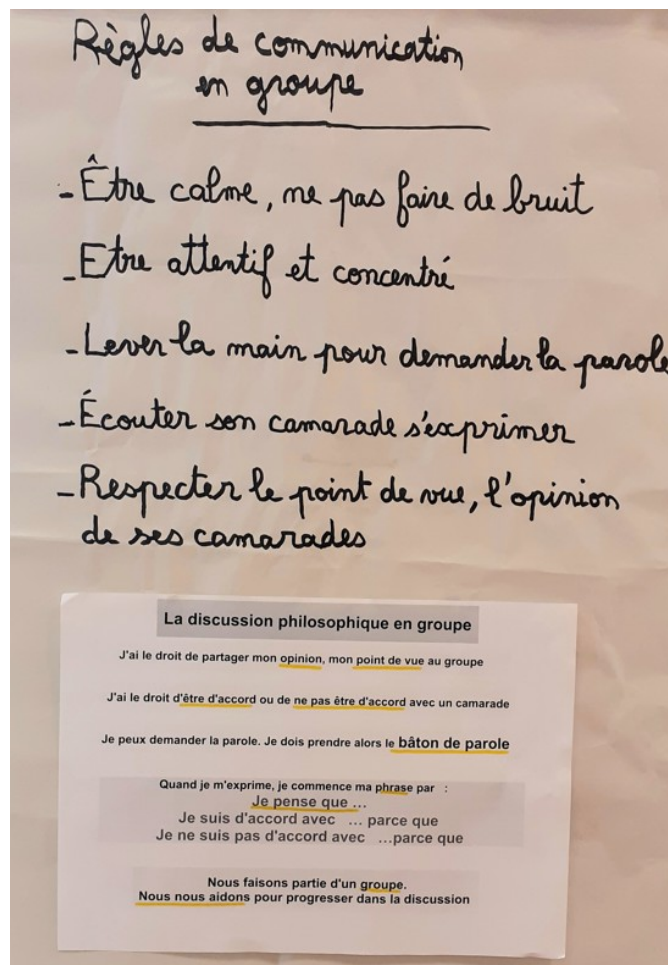 Règles de communication
en groupe
- Être calme, ne pas faire de bruit
- Etre attentif et concentré
- Lever la main pour demander la parole
- Écouter son camarade s'exprimer
- Respecter le point de vue, l'opinion
de ses camarades
La discussion philosophique en groupe
J'ai le droit de partager mon opinion, mon point de vue au groupe
J'ai le droit d'être d'accord ou de ne pas être d'accord avec un camarade
Je peux demander la parole. Je dois prendre alors le bâton de parole
Quand je m'exprime, je commence ma phrase par :
Je pense que ...
Je suis d'accord avec ... parce que
Je ne suis pas d'accord avec ...parce que
Nous faisons partie d'un groupe.
Nous nous aidons pour progresser dans la discussion